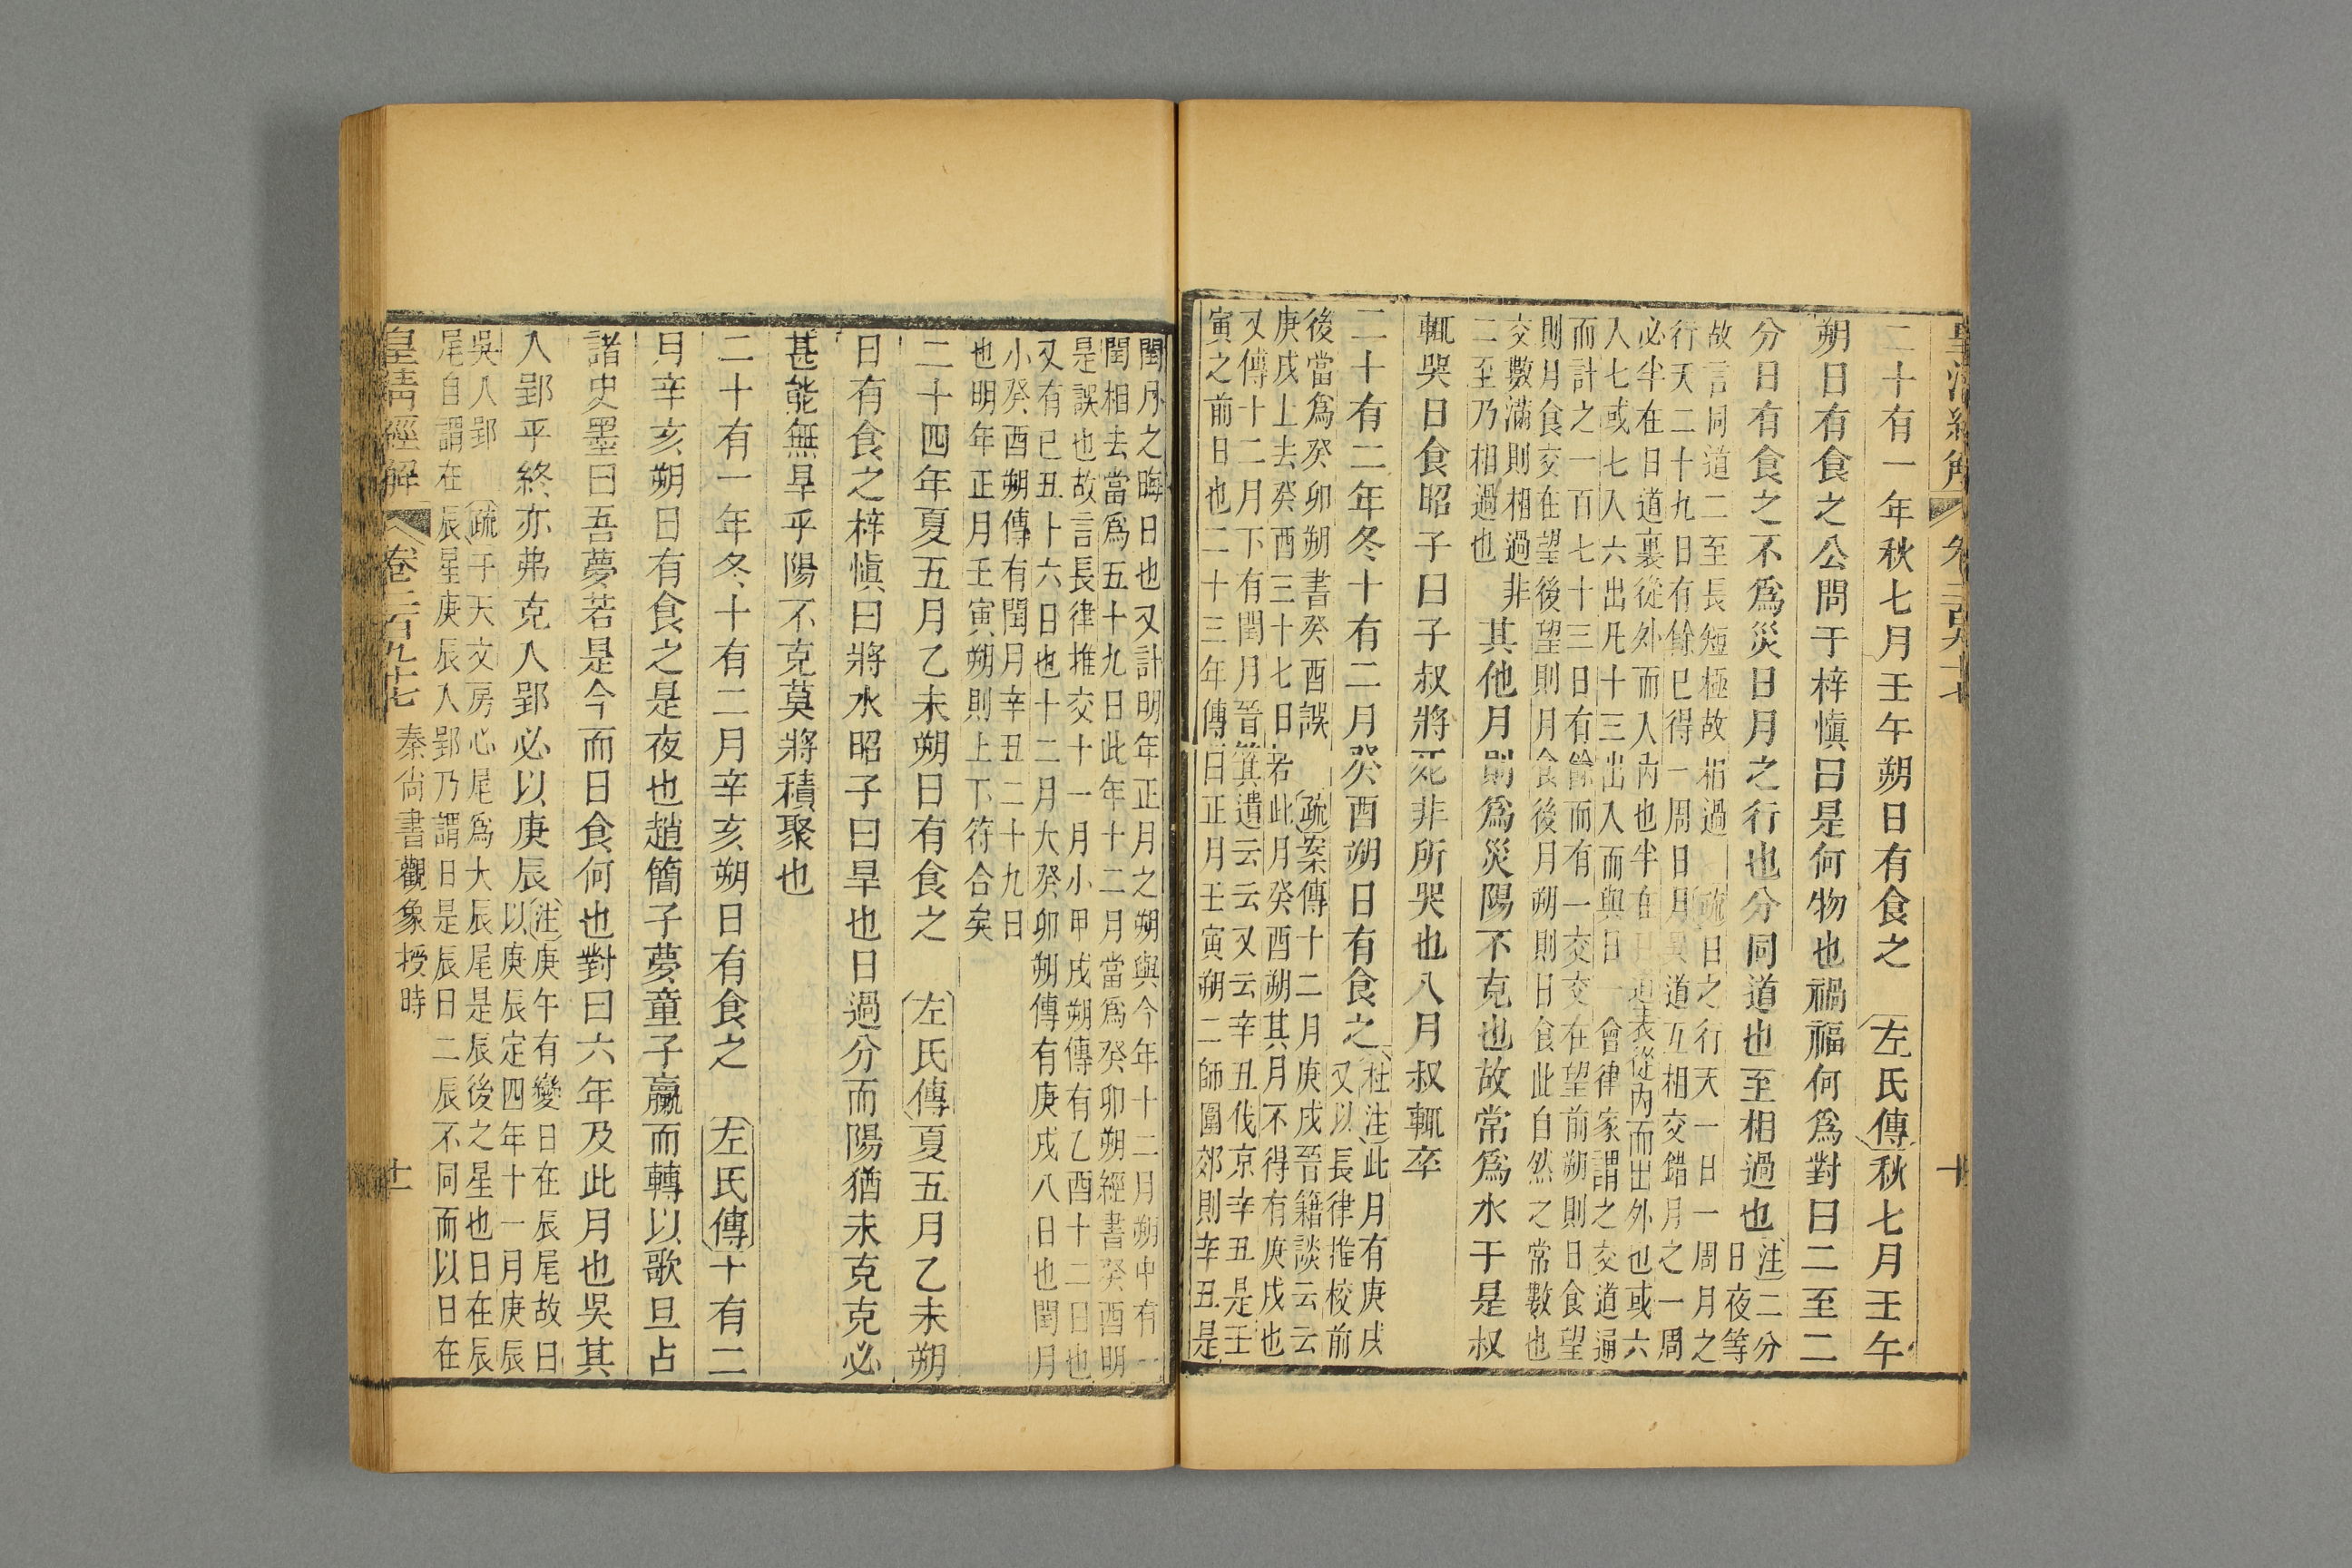 二十有一年秋七月壬午朔日有食之　左氏傳秋七月壬午
朔日有食之公問于梓慎曰是何物也禍福何為對曰二至二
分日有食之不為災日月之行也分同道也至相過也注二分
日夜等
故言同道二至長短極故相過　疏日之行天一日一周月之
行天二十九日有餘已得一周日月異道互相交錯月之一周
必半在日道裏從外而入內也半在日道表從內而出外也或六
入七或七入六出凡十三出入而與日一會律家謂之交道通
而計之一百七十三日有餘而有一交交在望前朔則日食望
則月食交在望後望則月食後月朔則日食此自然之常數也
交數滿則相過非
二至乃相過也
其他月則為災陽不克也故常為水于是叔
輒哭日食昭子曰子叔將死非所哭也八月叔輒卒
二十有二年冬十有二月癸酉朔日有食之杜注此月有庚戌
又以長律推校前
後當為癸卯朔書癸酉誤　疏案傳十二月庚戌晉籍談云云
庚戌上去癸酉三十七日若此月癸酉朔其月不得有庚戌也
又傳十二月下有閏月晉箕遺云云又云辛丑伐京辛丑是壬
寅之前日也二十三年傳曰正月壬寅朔二師圍郊則辛丑是
皇清經解　卷二百九十七　十
閏月之晦日也又計明年正月之朔與今年十二月朔中有一
閏相去當為五十九日此年十二月當為癸卯朔經書癸酉明
是誤也故言長律推交十一月小甲戌朔傳有乙酉十二日也
又有己丑十六日也十二月大癸卯朔傳有庚戌八日也閏月
小癸酉朔傳有閏月辛丑二十九日
也明年正月壬寅朔則上下符合矣
二十四年夏五月乙未朔日有食之　左氏傳夏五月乙未朔
日有食之梓慎曰將水昭子曰旱也日過分而陽猶未克克必
甚能無旱乎陽不克莫將積聚也
二十有一年冬十有二月辛亥朔日有食之　左氏傳十有二
月辛亥朔日有食之是夜也趙簡子夢童子臝而轉以歌旦占
諸史墨曰吾夢若是今而日食何也對曰六年及此月也吳其
入郢乎終亦弗克入郢必以庚辰注庚午有變日在辰尾故曰
以庚辰定四年十一月庚辰
吳入郢　疏于天文房心尾為大辰尾是辰後之星也日在辰
尾自謂在辰星庚辰入郢乃謂日是辰日二辰不同而以日在
皇清經解　卷二百九十七　秦尚書觀象授時　十一